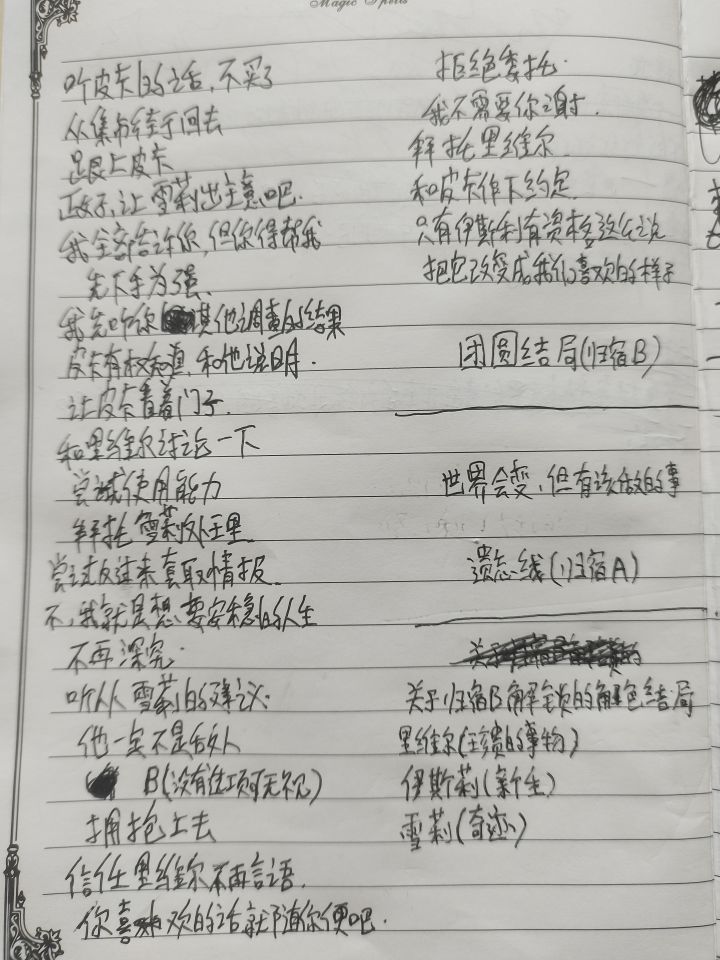 Magic Spells
听皮卡的话，不买了
从集市绕行回去
跟上皮卡
正好，让雪莉出主意吧.
我全部告诉你，但你得帮我
先下手为强、
我先听你其他调查的结果
皮卡有权知道，和他说明.
让皮卡看着门子.
和里维尔讨论一下
尝试使用能力
拜托雪莉处理.
尝试反过来套取情报.
不，我就是想要安稳的人生
不再深究.
听从雪莉的建议.
他一定不是坏人
B(没有选项可无视)
拥抱上去
信任里维尔不再言语.
你喜欢的话就随你便吧.
拒绝委托.
我不需要你谢.
拜托里维尔
和皮卡作下约定.
只有伊斯利有资格这么说
把它改变成我们喜欢的样子
团圆结局(归宿B)
世界会变，但有该做的事
遗忘线(归宿A)
关于归宿B解锁的角色结局
里维尔(珍贵的事物)
伊斯莉(新生)
雪莉(奇迹)